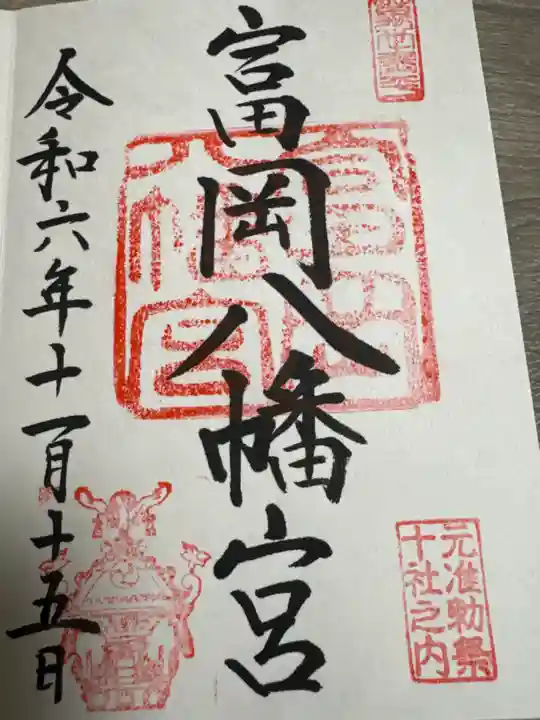 富岡八幡宮
元准勅祭
十社之内
令和六年十一月十五日